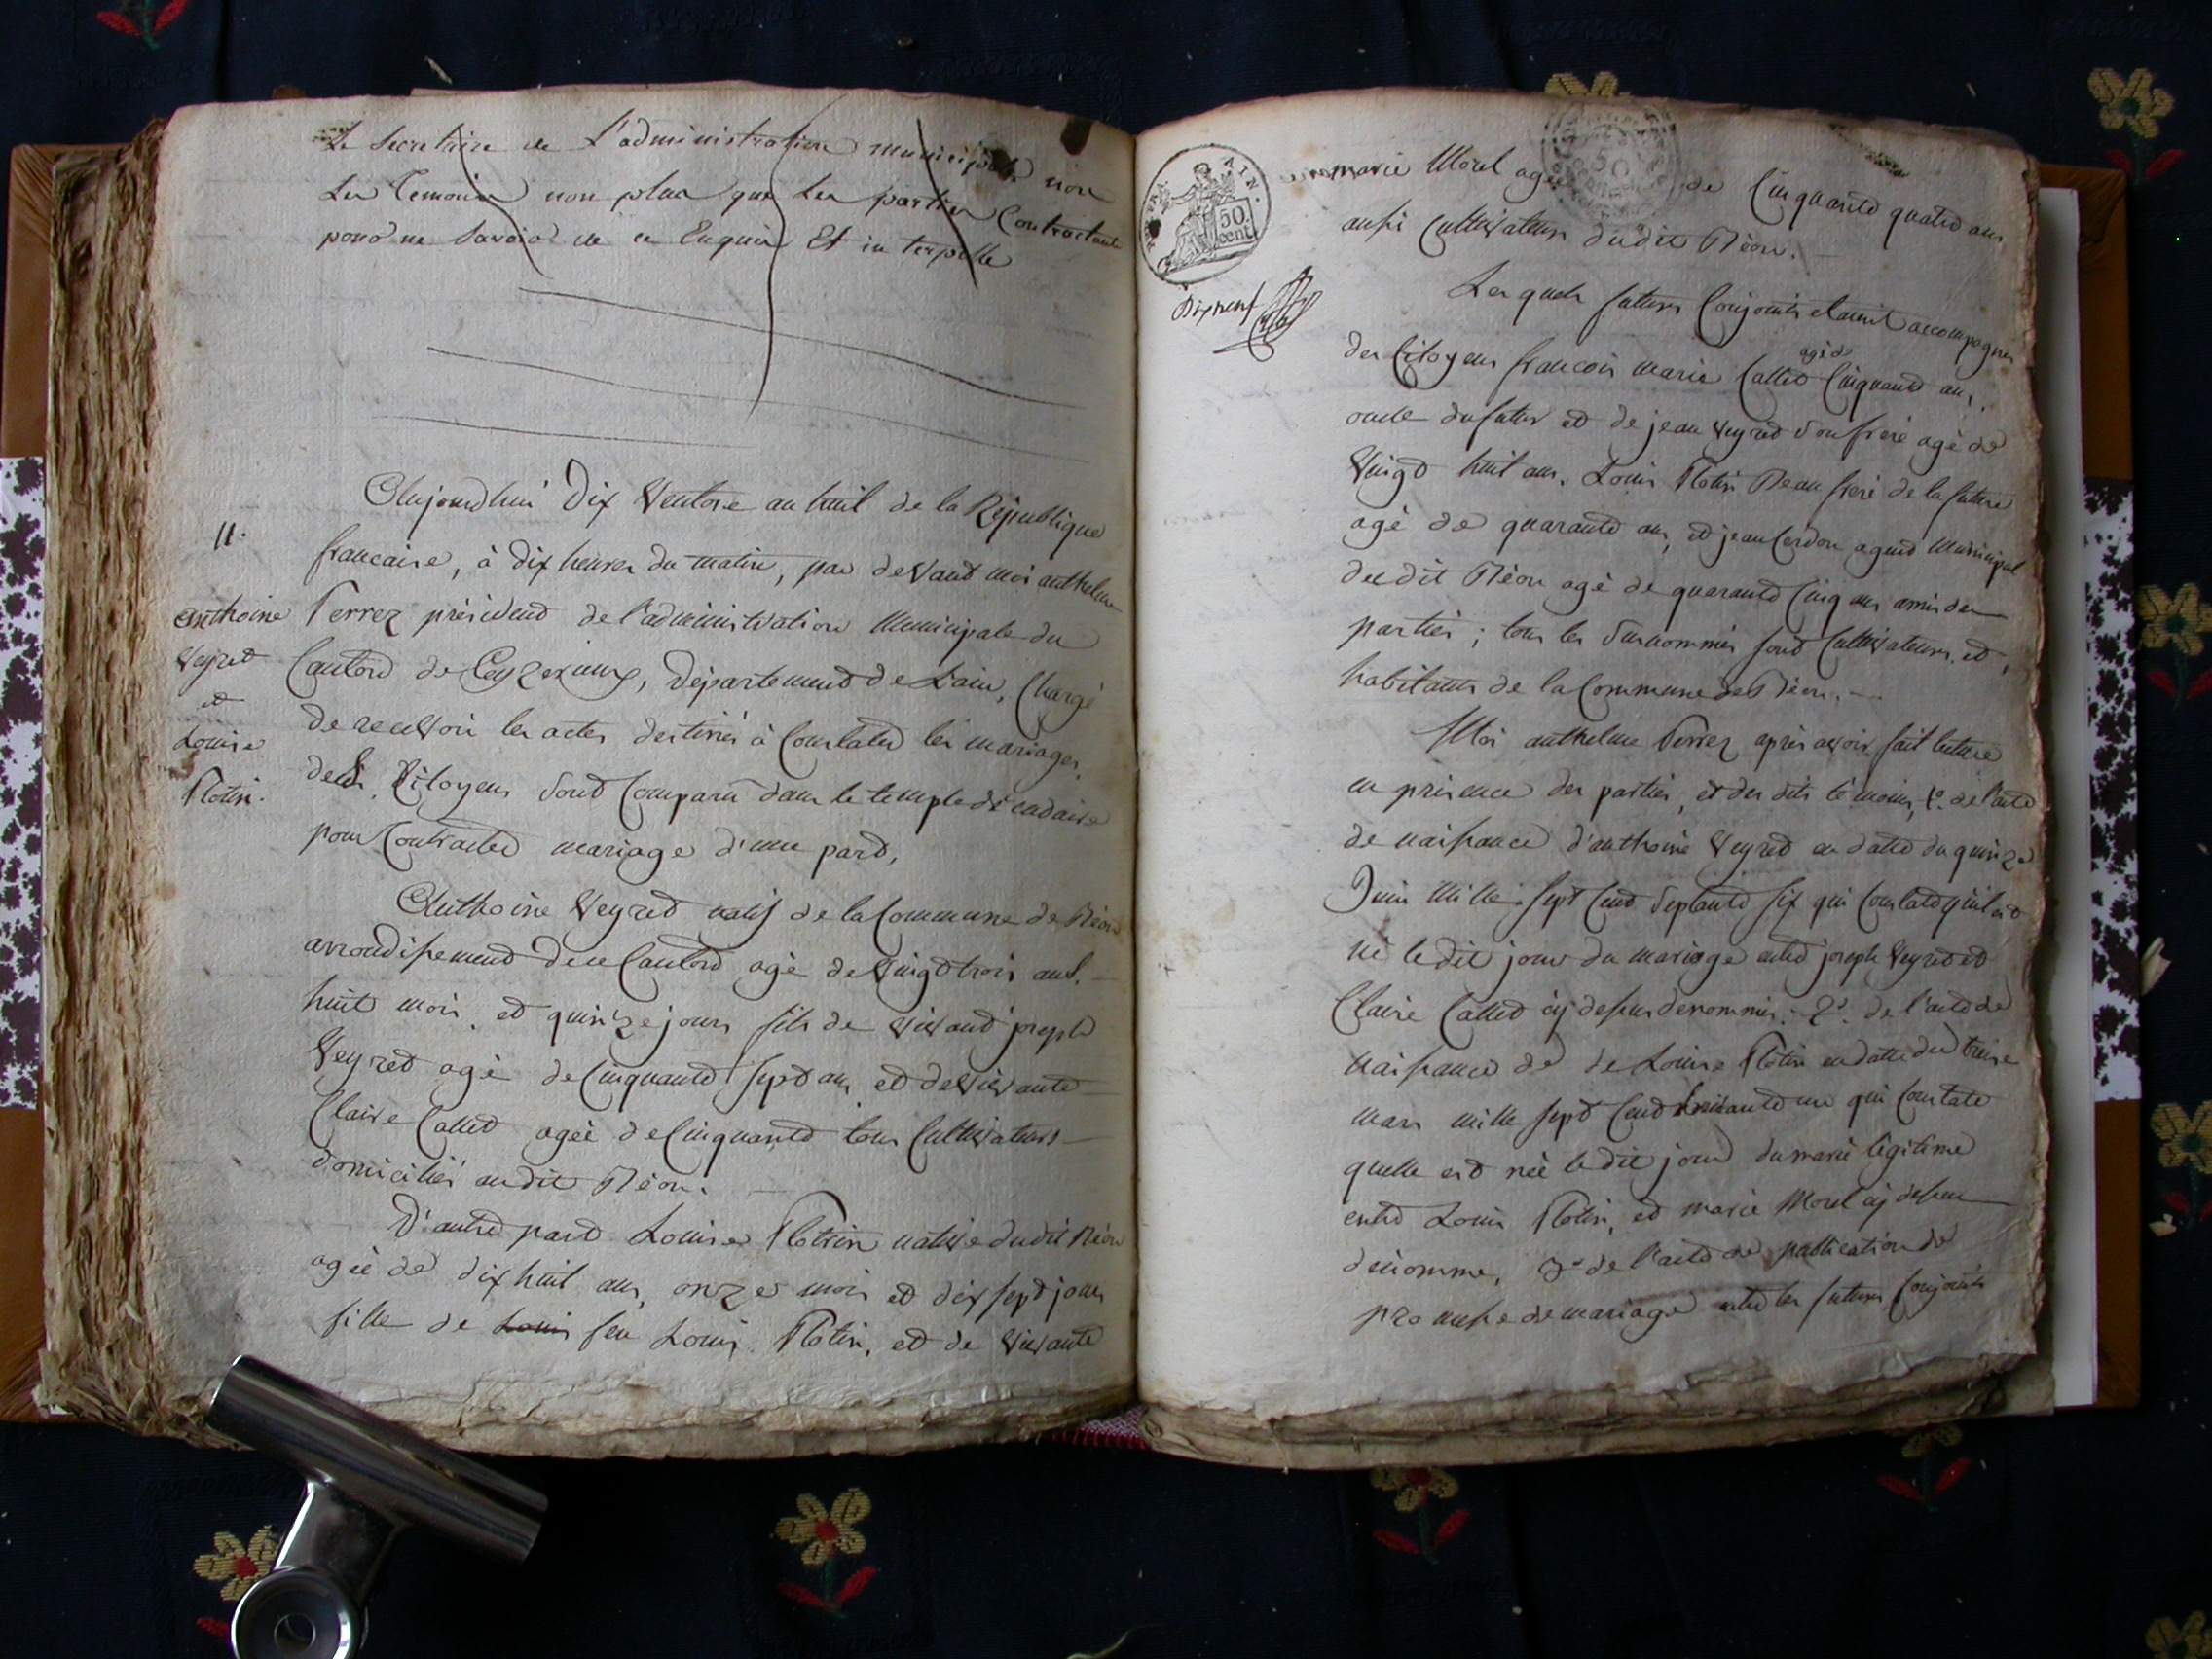 Le Secretaire de L'administration municipale non
Les Temoins non plus que les parties Contractante
pour ne Savoir de ce Enquis Et interpelle
11.
anthoine
Veyret
et
Louise
Flotin.
Aujourdhui Dix Ventose an huit de la République
francaise, à dix heures du matin, par devant moi anthelme
Ferrez président de l'administration Municipale du
Canton de Ceyzerieux, Département de L'ain, Chargé
de recevoir les actes destinés à Constater les mariages,
des Citoyens sont Comparu dans le temple décadaire
pour Contracter mariage d'une part,
Anthoine Veyret natif de la Commune de Béon
arrondissement de ce Canton agé de Vingt trois ans.
huit mois, et quinze jours fils de vivant joseph
Veyret agé de Cinquante sept ans et de vivante
Claire Callet ageé de Cinquante tous Cultivateurs
domiciliés audit Béon.
D'autre part Louise Flotrin native dudit Béon
ageé de dix huit ans, onze mois et dix sept jours
fille de Louis feu Louis Flotin, et de vivante
AIN.
50.
cent.
Dixneuf
marie Morel ageé de Cinquante quatre ans
aussi Cultivateurs dudit Béon.
Les quels futurs Conjoints etoient accompagnés
des Citoyens francois marie Callet agé de Cinquante ans,
oncle du futur et de jean Veyret Son frere agé de
Vingt huit ans, Louis Flotin Beau frere de la future
agé de quarante ans, et jean Cerdon agent Municipal
du dit Béon agé de quarante Cinq ans amis des
parties; tous les Surnommés sont Cultivateurs et
habitants de la Commune de Béon.
Moi anthelme Ferrez après avoir fait lecture
en présence des parties, et des dits témoins, 1°. de l'acte
de naissance d'anthoine Veyret en datte du quinze
Juin Mille Sept Cent Septante Six qui Constate qu'il est
né le dit jour du mariage entre joseph Veyret et
Claire Callet cy dessus denommés. 2°. de l'acte de
naissance de de Louise Flotin en datte du treise
mars mille sept Cent huitante un qui Constate
quelle est née le dit jour du marié légitime
entre Louis Flotin, et marie Morel cy dessus
dénommé, 3° de l'acte de publication de
promesse de mariage entre les futurs Conjoints